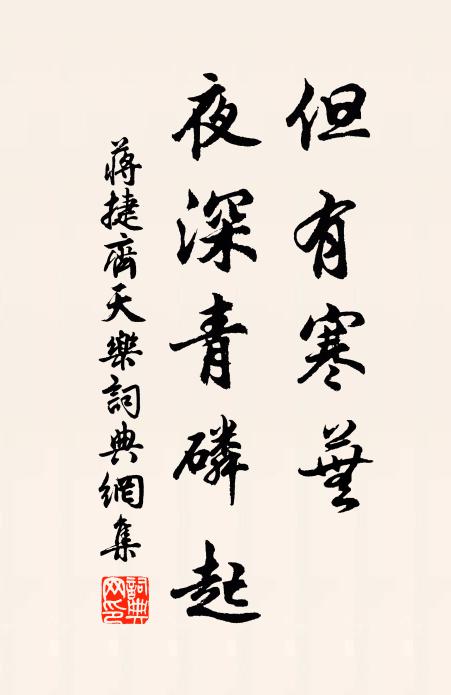 但有寒蕪
夜深青磷起
蔣捷齊天樂詞典網集
詞典網印